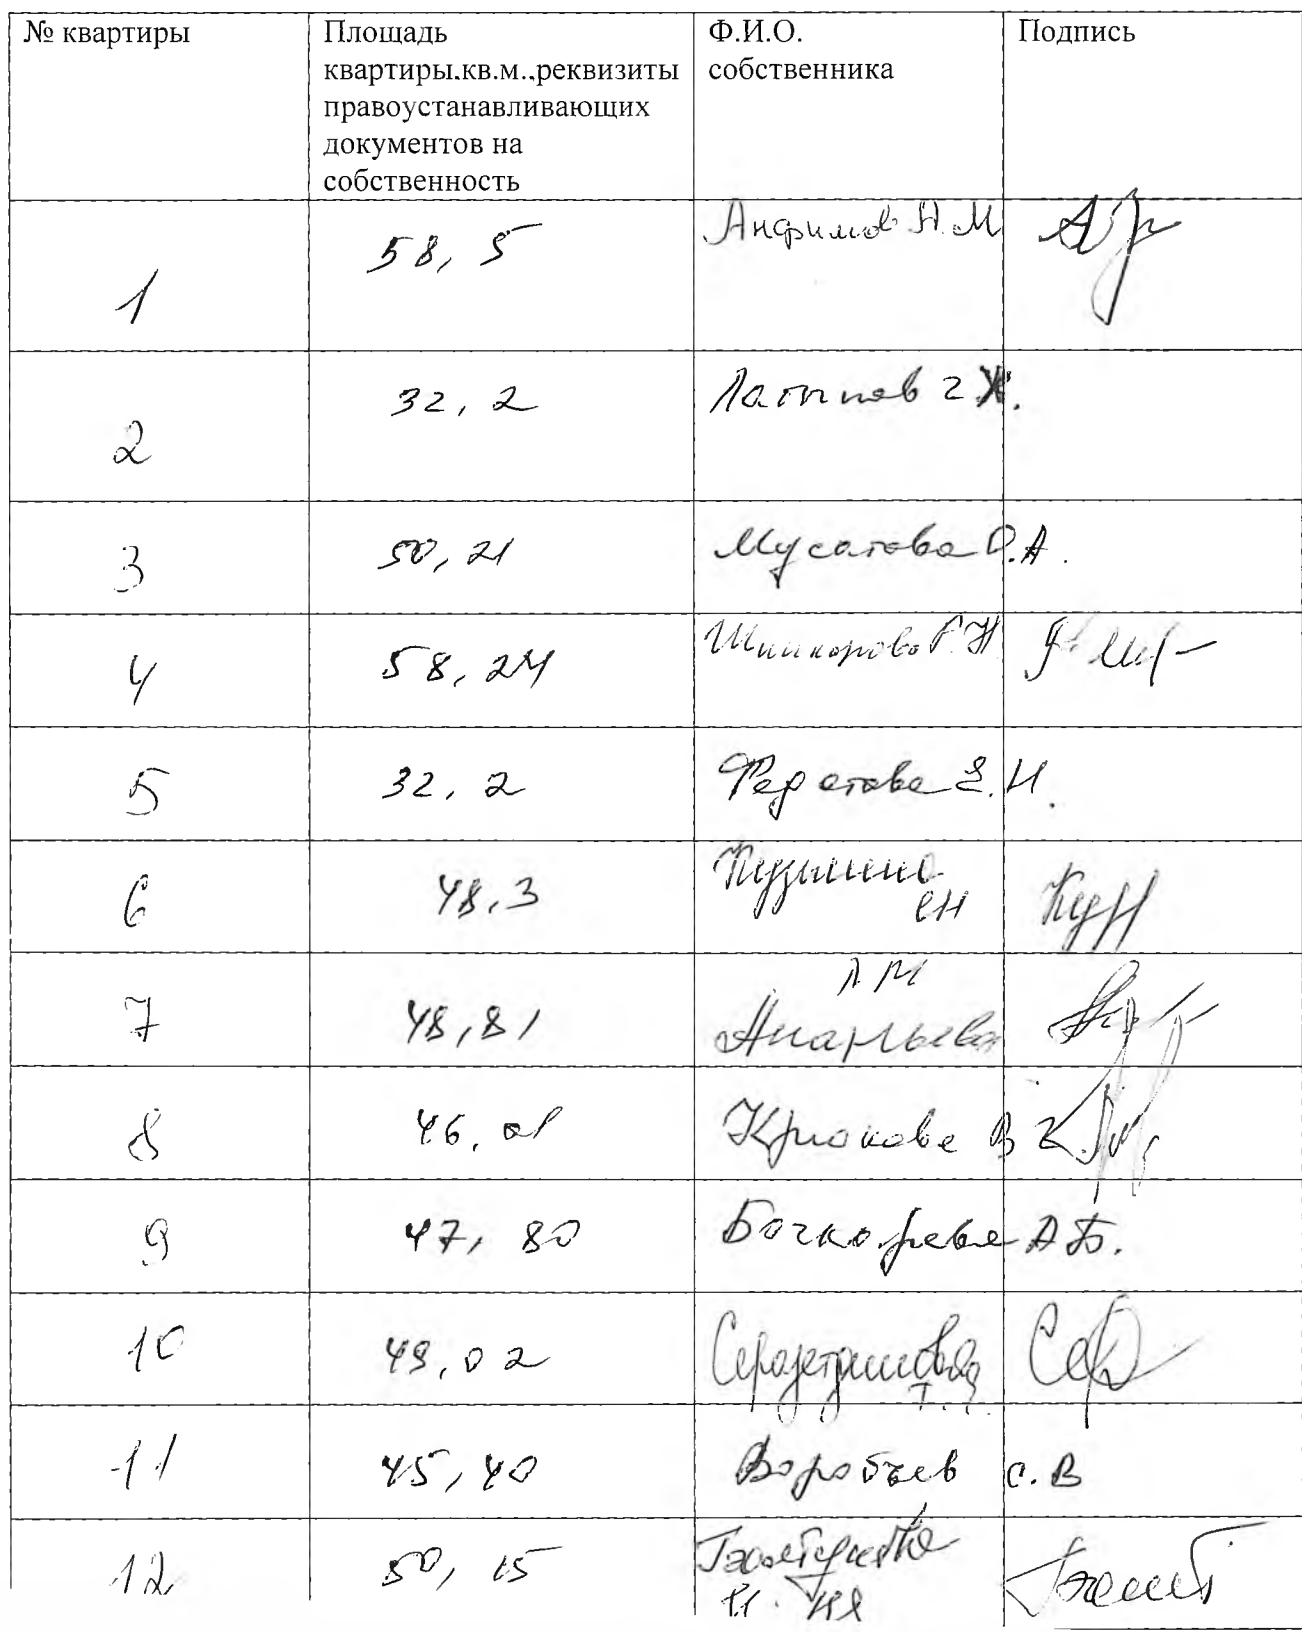 № квартиры
Площадь
квартиры.кв.м.,реквизиты
правоустанавливающих
документов на
собственность
Ф.И.О.
собственника
Подпись
1
58, 5
Анфимов А.М
2
32, 2
Латыпов
3
50, 21
Мусатова О.А.
4
58, 24
5
32, 2
Е.И.
6
48,3
Кузьмина
ЕН
7
48,81
Л М
Ананьева
8
46, 01
Крюкова В
9
47, 80
Бочкарева А Б.
10
49,02
11
45, 40
Воробьев С. В
12
50, 15